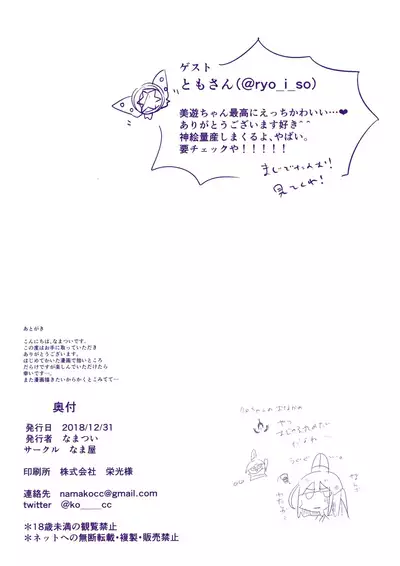 ゲスト
ともさん(@ryo_i_so)
美遊ちゃん最高にえっちかわいい…❤
ありがとうございます好き^^
神絵量産しまくるよ、やばい。
要チェックや!!!!!
まじでたのむ!
見てくれ!
あとがき
こんにちは、なまついです。
この度はお手に取っていただき
ありがとうございます。
はじめてかいた漫画で拙いところ
だらけですが楽しんでいただけたら
幸いです…。
また漫画描きたいからかくとこみてて…
奥付
発行日 2018/12/31
発行者 なまつい
サークル なま屋
印刷所 株式会社 栄光様
連絡先 namakocc@gmail.com
twitter @ko____cc
*18歳未満の観覧禁止
*ネットへの無断転載・複製・販売禁止